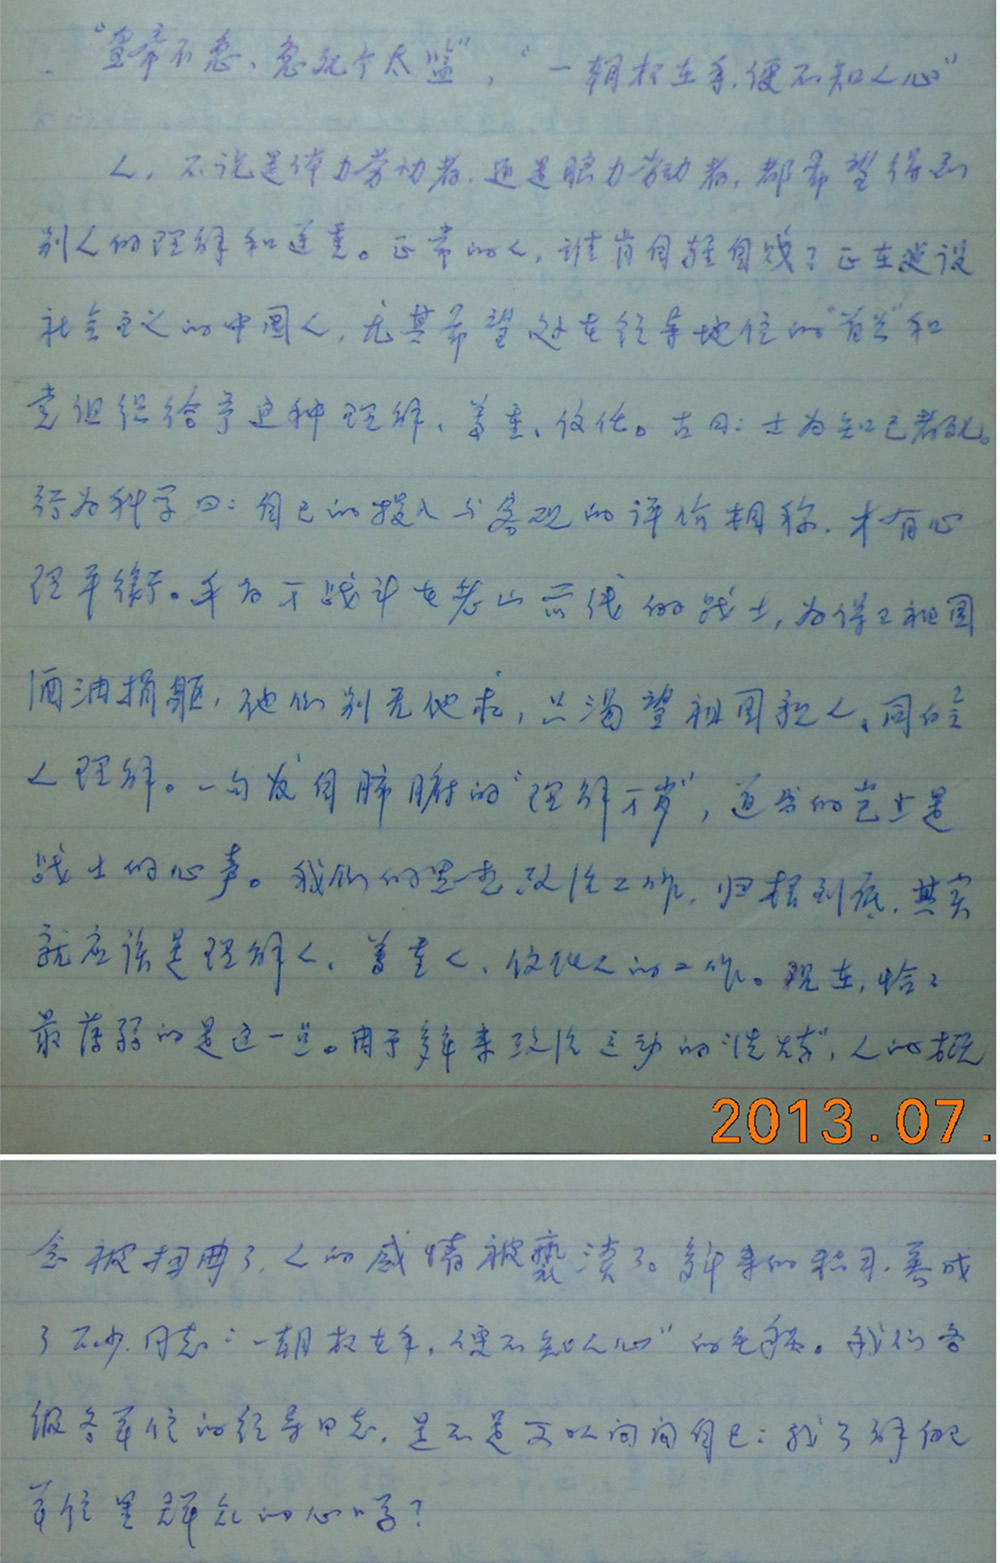 “皇帝不急、急死个太监”，“一朝权在手，便不知人心”
人，不说是体力劳动者，还是脑力劳动者，都希望得到
别人的理解和尊重。正常的人，谁肯自轻自贱？正在建设
社会主义的中国人，尤其希望处在领导地位的“首长”和
党组织给予这种理解、尊重、信任。古曰：士为知己者死。
行为科学曰：自己的投入与客观的评价相称，才有心
理平衡。千百万战斗在老山前线的战士，为保卫祖国
洒血捐躯，他们别无他求，只渴望祖国亲人、同伍
人理解。一句发自肺腑的“理解万岁”，道出的岂止是
战士的心声。我们的思想政治工作，归根到底，其实
就应该是理解人、尊重人、信任人的工作。现在，恰恰
最薄弱的是这一点。由于多年来政治运动的“洗劫”，人的概
念被扭曲了，人的感情被亵渎了。多年来的积习，养成
了不少同志“一朝权在手，便不知人心”的毛病。我们各
级各单位的领导同志，是不是可以问问自己：我了解自己
单位里群众的心吗？
2013.07.